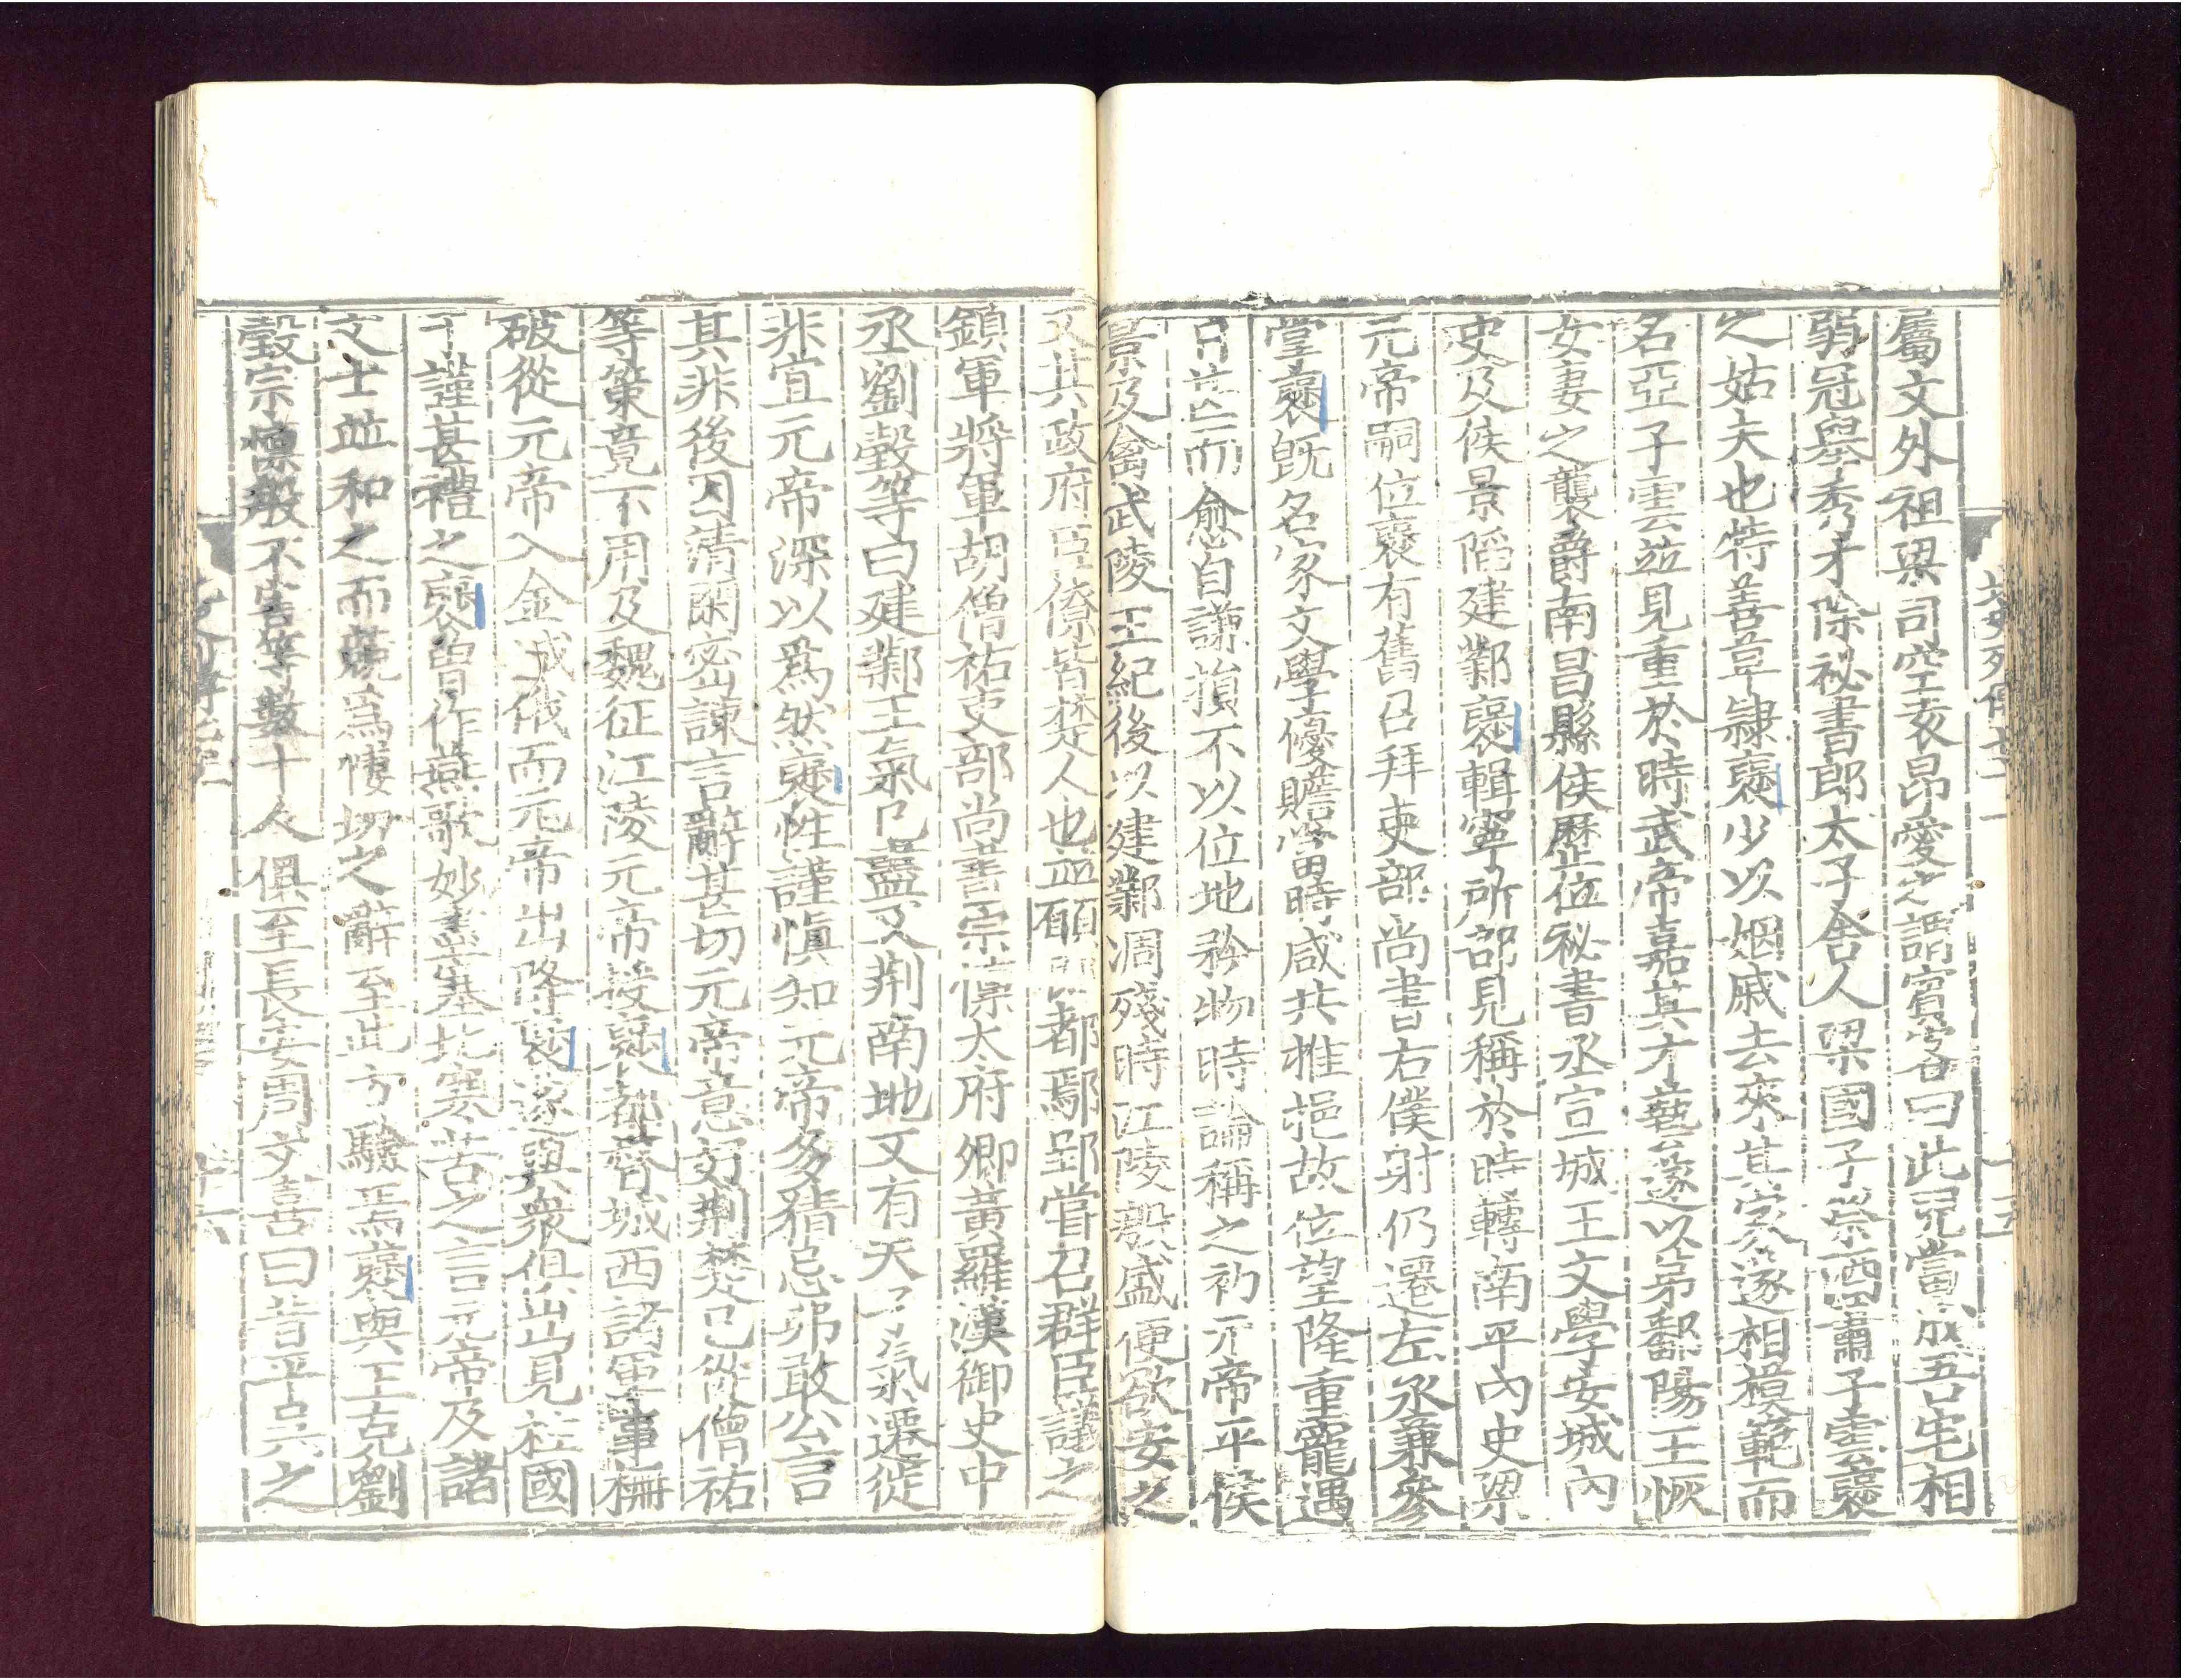 屬文外祖梁司空袁昂愛之謂賓客曰此兒當成吾宅相
弱冠舉秀才除祕書郎太子舍人梁國子祭酒蕭子雲襃
之姑夫也特善草隷襃少以姻戚去來其家遂相模範而
名亞子雲並見重於時武帝嘉其才藝遂以弟鄱陽王恢
女妻之襲爵南昌縣侯歷位祕書丞宣城王文學安城內
史及侯景陷建鄴襃輯寧所部見稱於時轉南平內史梁
元帝嗣位襃有舊召拜吏部尚書右僕射仍遷左丞兼參
掌襃旣名家文學優贍當時咸共推挹故位望隆重寵遇
日甚而愈自謙損不以位地矜物時論稱之初元帝平侯
景及禽武陵王紀後以建鄴凋殘時江陵殷盛便欲安之
又其政府臣僚皆楚人也並願即都鄢郢嘗召群臣議之
鎮軍將軍胡僧祐吏部尚書宗懍太府卿黃羅漢御史中
丞劉瑴等曰建鄴王氣已盡又荆南地又有天子氣遷徙
非宜元帝深以爲然襃性謹愼知元帝多猜忌弗敢公言
其非後因清閑密諫言辭甚切元帝意好荆楚已從僧祐
等策竟不用及魏征江陵元帝授襃都督城西諸軍事柵
破從元帝入金城俄而元帝出降襃遂與衆俱出見柱國
于謹甚禮之襃曾作燕歌妙盡塞北寒苦之言元帝及諸
文士並和之而競爲悽切之辭至此方驗焉襃與王克劉
瑴宗懍殷不害等數十人俱至長安周文喜曰昔平吳之